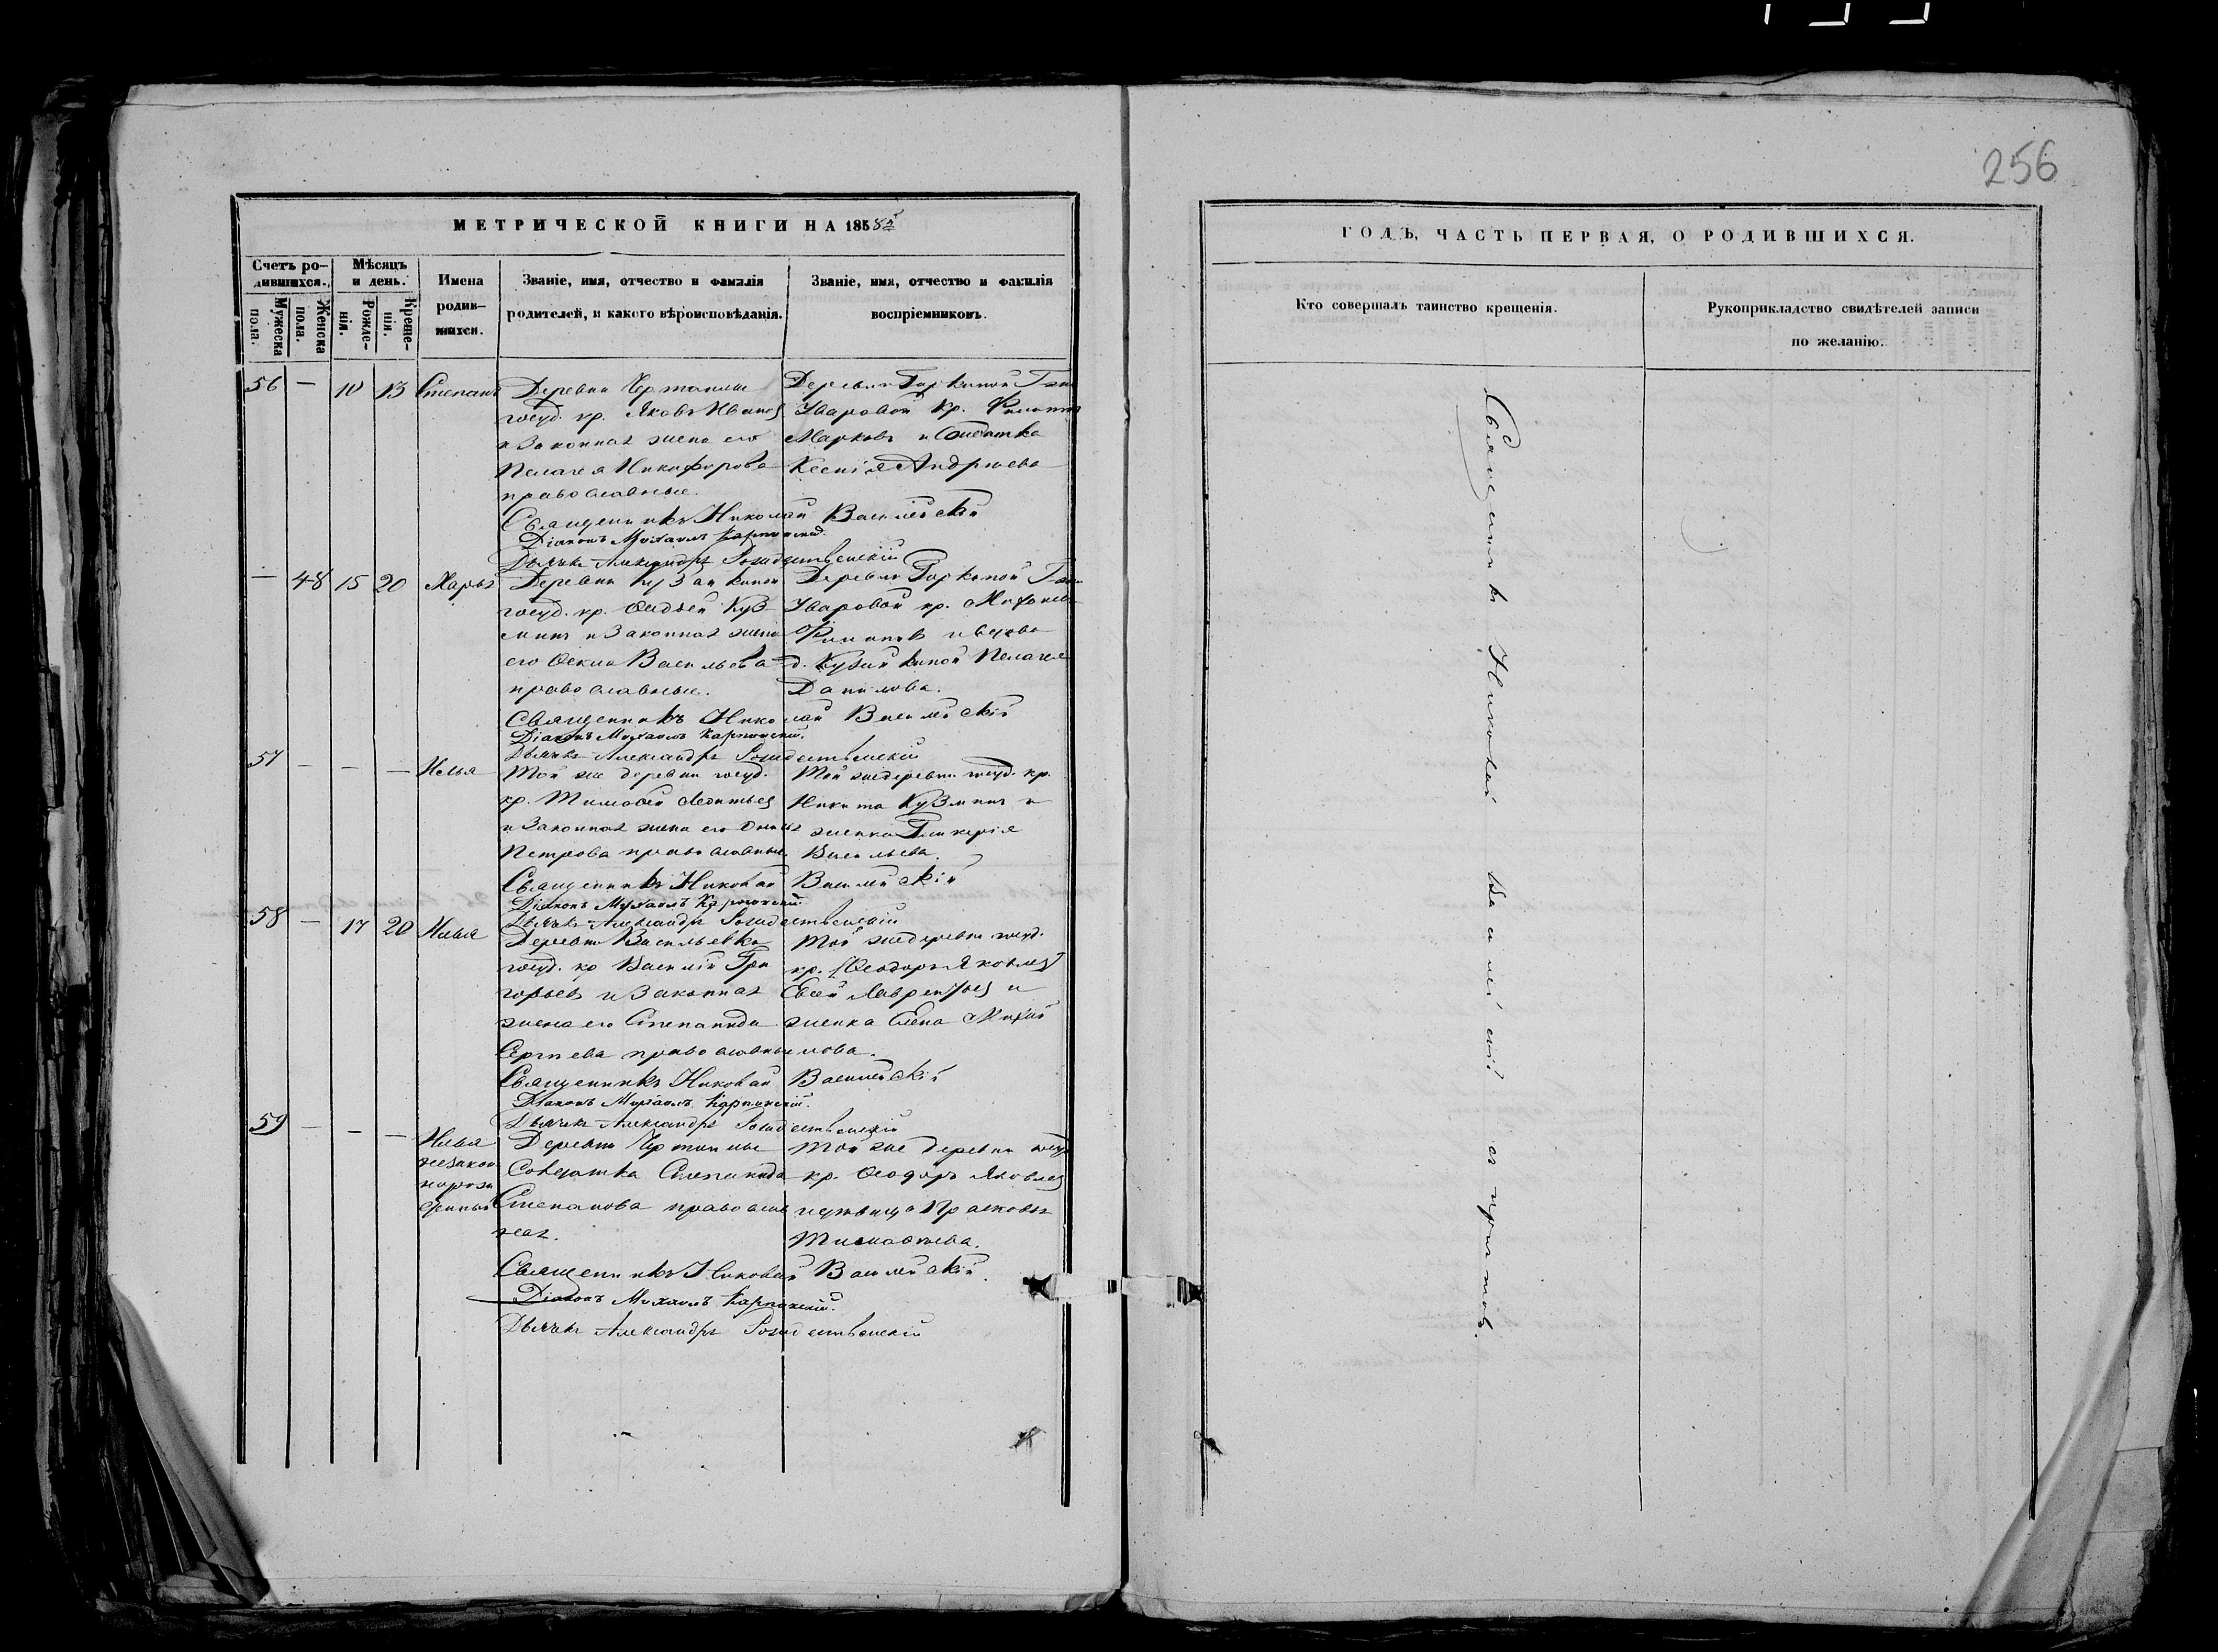 256
МЕТРИЧЕСКОЙ КНИГИ НА 1858
Счетъ ро-
дившихся.
Мужеска
пола.
Женска
пола.
Мѣсяцъ
и день.
Рожде-
нія.
Креще-
нія.
Имена
родив-
шихся.
Званіе, имя, отчество и фамилія
родителей, и какого вѣроисповѣданія.
Званіе, имя, отчество и фамилія
воспріемниковъ.
56 — 10 13 Степанъ
Деревни
госуд. кр. Яковъ Ивановъ
и законная жена его
Пелагея Никифорова
православные.
Деревни
Уваровой кр. Филиппъ
Марковъ и Солдатка
Ксенія Андреева
Священникъ Николай
Діаконъ Михаилъ Карпинскій.
Дьячекъ Александръ Рождественскій
— 48 15 20 Марья
Деревни
госуд. кр. Авдѣй Куз-
минъ и законная жена
его Фекла Васильева
православные.
Деревни
Уваровой кр.
Филиповъ и вдова
д. Пелагея
Данилова.
Священникъ Николай
Діаконъ Михаилъ Карпинскій.
Дьячекъ Александръ Рождественскій
57 — — — Илья
Той же деревни госуд.
кр. Тимофей Леонтьевъ
и законная жена его
Петрова православные.
Той же деревни госуд. кр.
Никита Кузминъ и
женка Гликерія
Васильева.
Священникъ Николай
Діаконъ Михаилъ Карпинскій.
Дьячекъ Александръ Рождественскій
58 — 17 20 Илья
Деревни Васильевки
госуд. кр Василій Гри
горьевъ и законная
жена его Степанида
Сергѣева православные
Той же деревни госуд.
кр. Ѳеодоръ Яковлевъ
Евсей Лаврентьевъ и
женка Елена Михай
лова.
Священникъ Николай
Діаконъ Михаилъ Карпинскій.
Дьячекъ Александръ Рождественскій
59 — — — Илья
незакон
норож
денный
Деревни
Солдатка Степанида
Степанова православ
ная.
Той же деревни госуд
кр. Ѳеодоръ Яковлевъ
и дѣвица Прасковья
Тимофѣева.
Священникъ Николай
Діаконъ Михаилъ Карпинскій.
Дьячекъ Александръ Рождественскій
ГОДЪ, ЧАСТЬ ПЕРВАЯ, О РОДИВШИХСЯ.
Кто совершалъ таинство крещенія.
Рукоприкладство свидѣтелей записи
по желанію.
Священникъ Николай съ причтомъ.